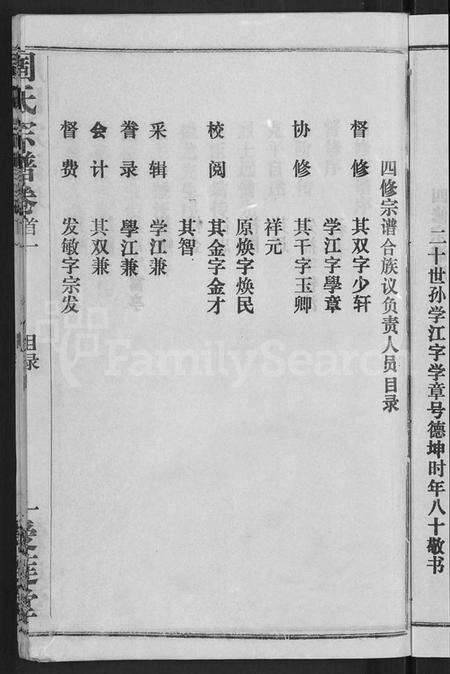 二十世孙学江字学章号德坤时年八十敬书
四修宗谱合族议负责人员目录
督修 其双字少轩
学江字學章
协修 其干字玉卿
祥元
原焕字焕民
校阅 其金字金才
其智
采辑 学江兼
誊录 學江兼
会计 其双兼
督费 发敏字宗发
周氏宗谱卷首一
目录
一
爱莲堂
FamilySearch